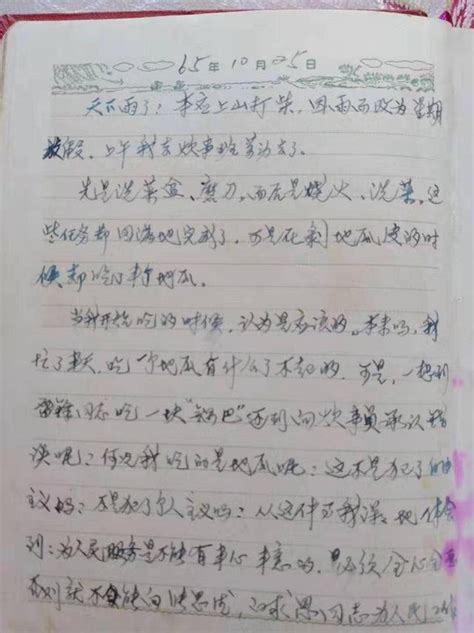 65年10月25日
天下雨了，本应上山打柴，因雨而改为星期
放假，上午我去炊事班劳动去了。
先是洗菜盆、磨刀，而后是烧火、洗菜，这
些任务都圆满地完成了，可是在剥地瓜皮的时
候却吃了半个地瓜。
当我开始吃的时候，认为是应该的，本来吗，我
忙了半天，吃一个地瓜有什么了不起的，可是，一想到
雷锋同志吃一块"锅巴"还到向炊事员承认错
误呢；何况我吃的是地瓜呢；这不是犯了自由
主义吗；不是犯了个人主义吗；从这件事我深深地体会
到：为人民服务是不能有半心半意的，必须全心全意
否则就不会能向张思德，